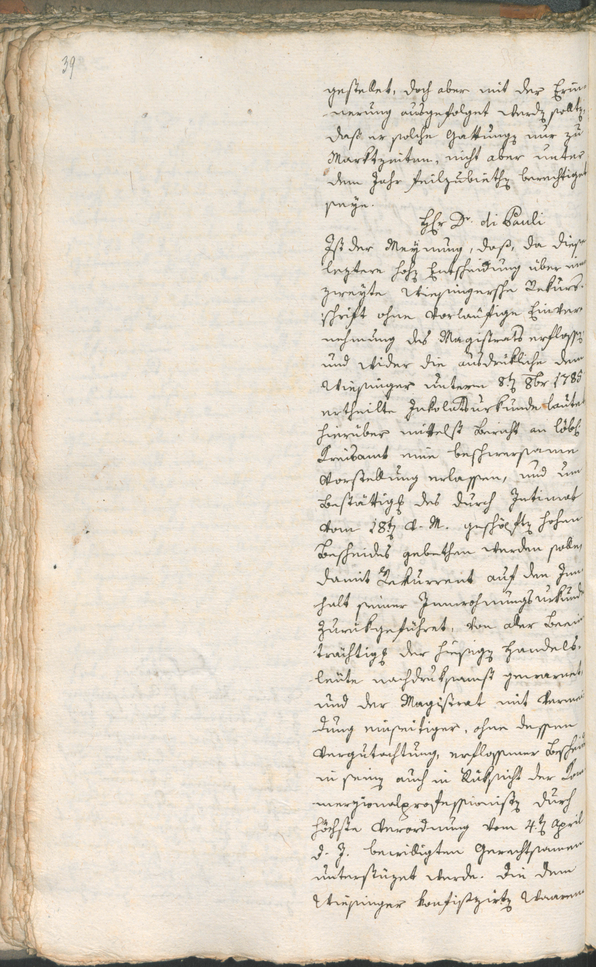 39
gestellet, doch aber mit der Erin¬
nerung ausgefolget werdn sollte,
daß er solche Gattungn nur zu
Marktzeiten, nicht aber unter
dem Jahr feilzubiethn berechtiget
seye.
Hr Dr. di Pauli
Ist der Meynung, daß, da diese
leztere hohe Entscheidung über eine
zweyte Wiesingersche Rekurs¬
schrift ohne vorläufige Einver¬
nehmung des Magistrats erflossen
und wider die ausdrükliche dem
Wiesinger unterm 8tn 8br 1785
ertheilte Inkolatsurkunde lautet
hierüber mittelst Bericht an löbl
Kreisamt eine beschwersame
Vorstellung erlassen, und um
Bestätigg des durch Intimat
vom 18tn v. M. geschöpftn hohen
Bescheides gebethen werden solle,
damit Rekurrent auf den Inn¬
halt seiner Innwohnungsurkunde
zurükgeführet, von aller Beein¬
trächtigg der hiesign Handels¬
leute nachdruksamst gewarnet
und der Magistrat mit Vermei¬
dung einseitiger, ohne dessen
Vergutachtung, erflossener Bescheide
in sein auch in Rüksicht der Kom¬
merzionalprofessionistn durch
höchste Verordnung vom 4tn April
d. J. bewilligten Gerechtsamen
unterstüzet werde. Die dem
Wiesinger konfiszirtn Waaren